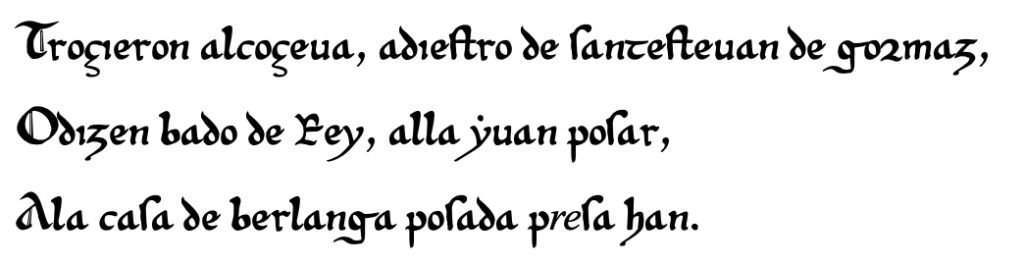 Troçieron alcoçeua, adieſtro de ſanteſteuan de gormaz,
Odizen bado de Rey, alla ẏuan poſar,
Ala caſa de berlanga poſada preſa han.